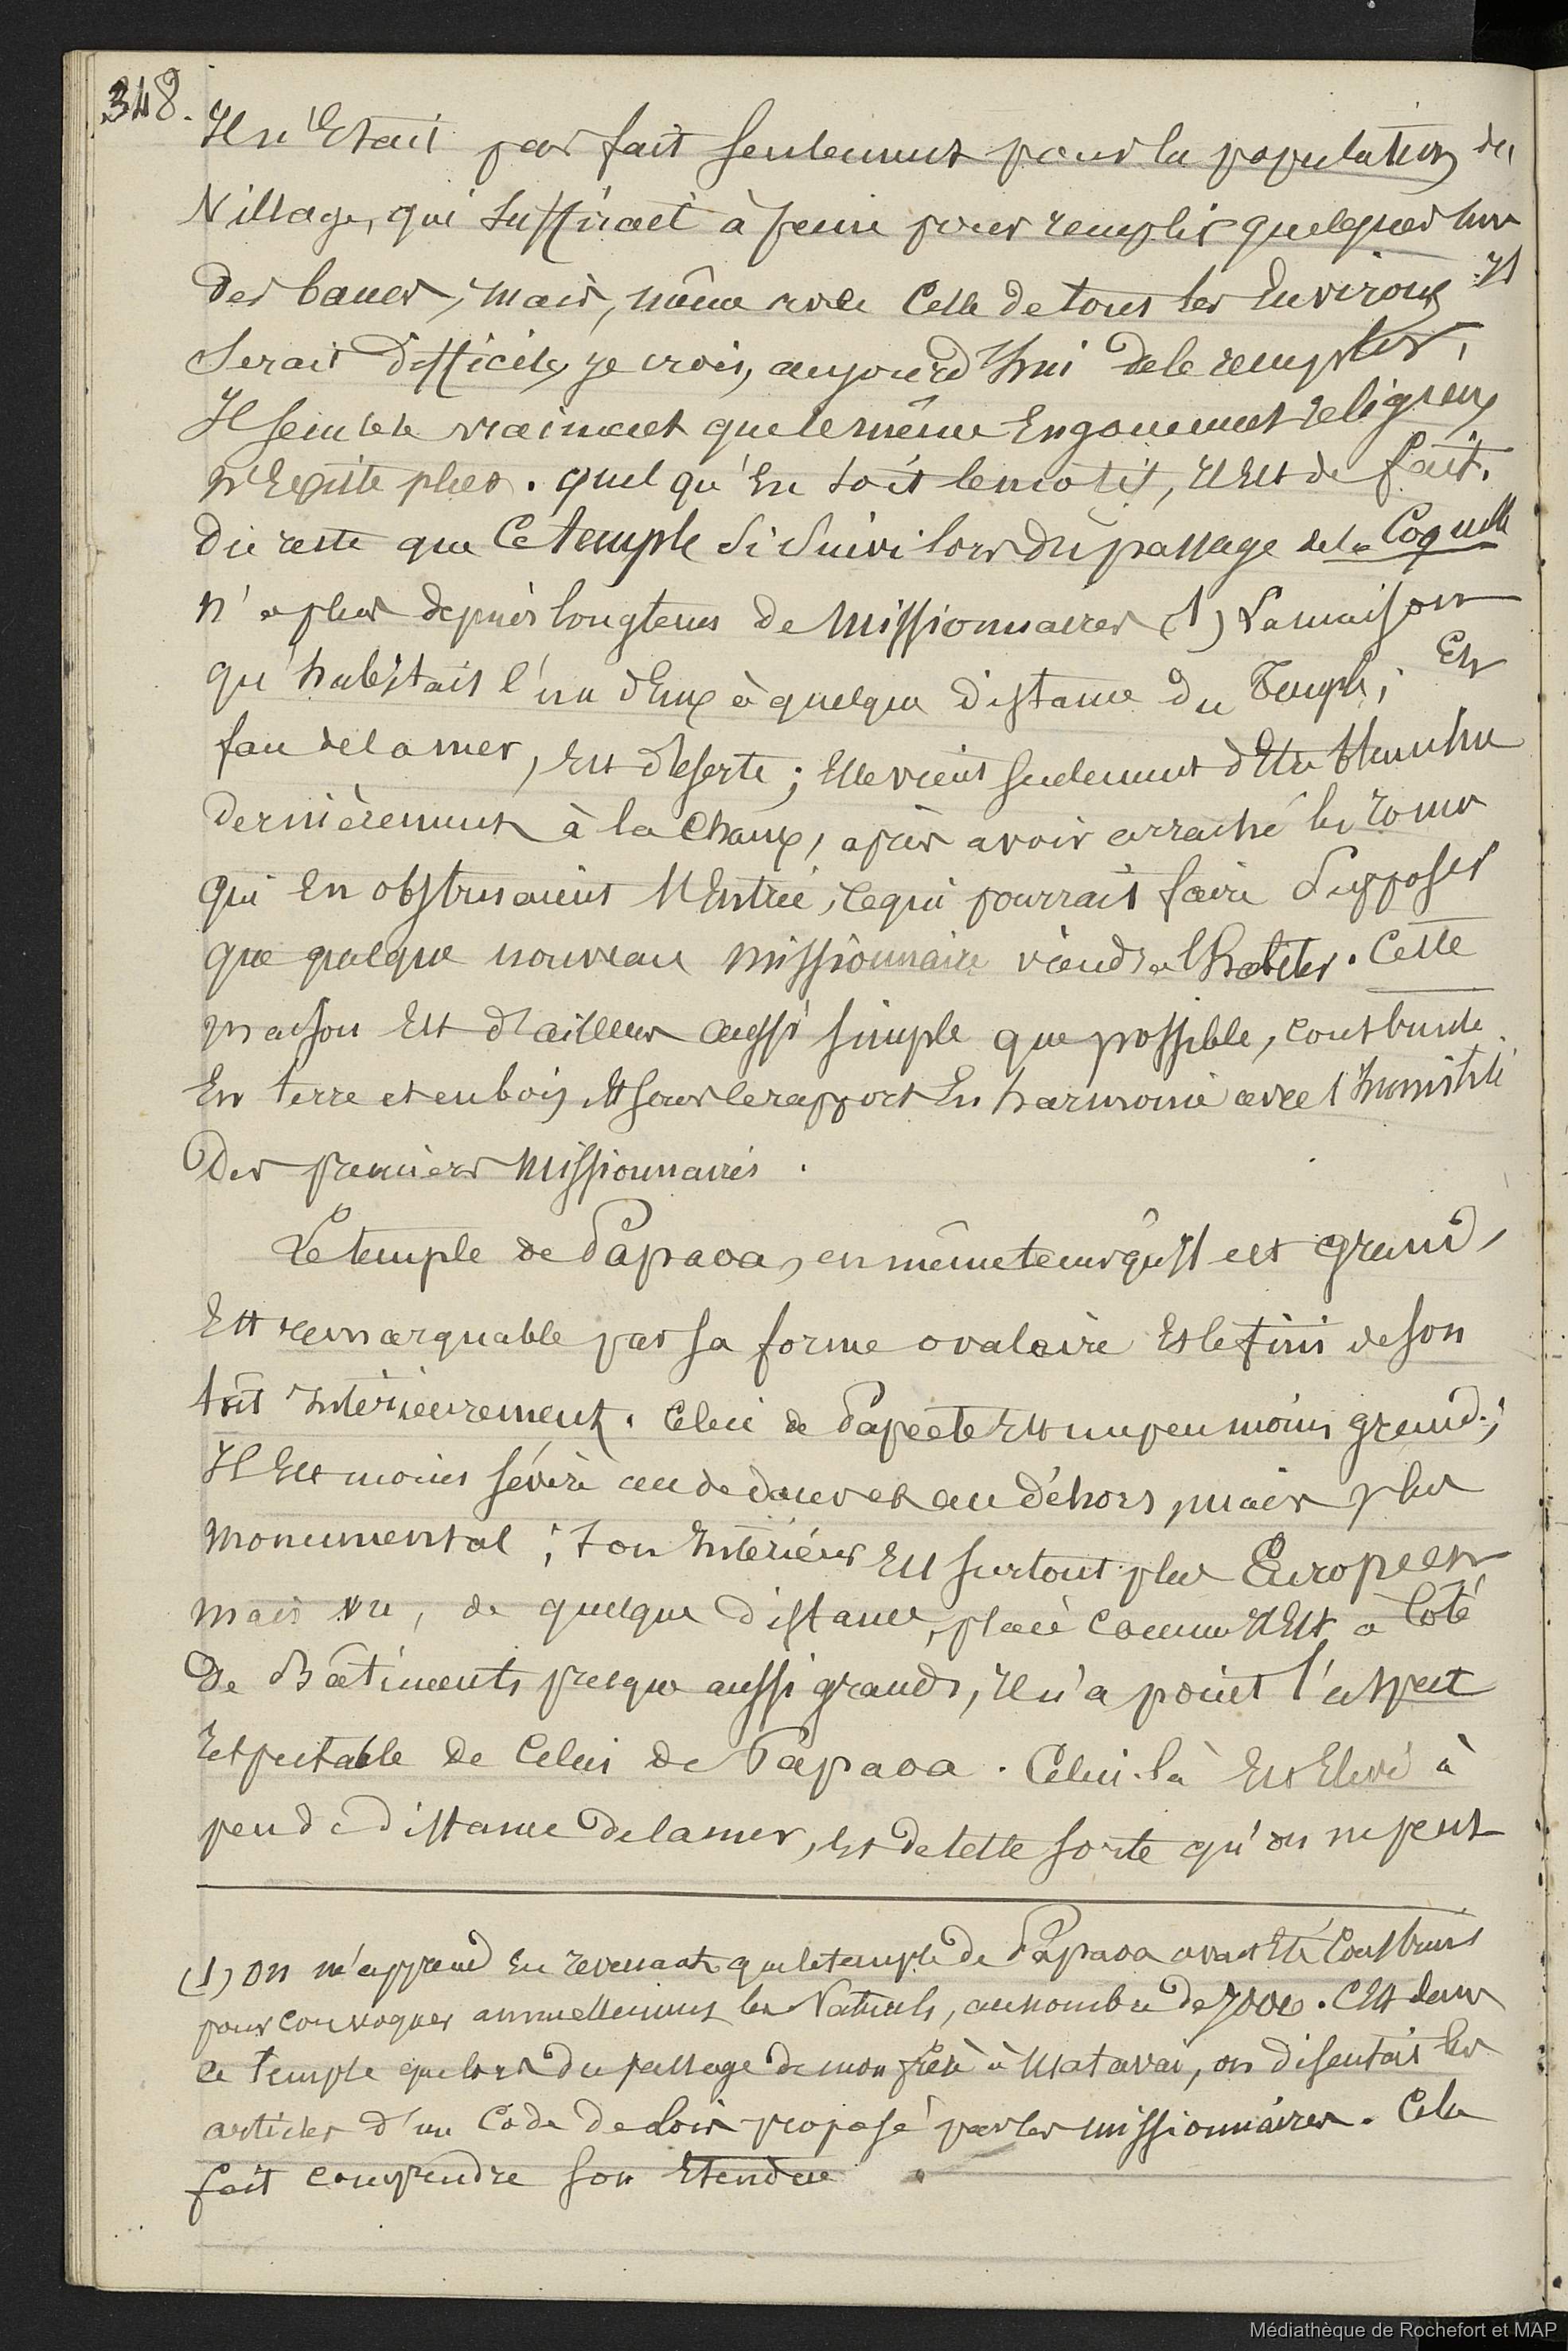 348.
Il n'Etait pas fait seulement pour la population du
Village, qui suffirait à peine pour remplir quelques uns
des bancs, mais, même avec Celle de tous les Environs Il
Serait difficile, je crois, aujourd'hui de le remplir,
Il semble vraiment que le même Engouement religieux
n'Existe plus. quel qu'En soit le motif, Il Est de fait.
Du reste que Ce temple si Suivi lors du passage de la Coquille
n'a plus depuis longtems de Missionnaires (1) La maison
qu'habitait l'un d'Eux à quelque distance du Temple, En
face de la mer, Est déserte ; Elle vient seulement d'Etre blanchie
dernièrement à la Chaux, après avoir arraché les
qui En obstruaient l'Entrée, Ce qui pourrait faire Supposer
que quelque nouveau missionnaire viendra l'habiter. Cette
maison Est d'ailleurs aussi simple que possible, construite
En terre et en bois, Et sous le rapport En harmonie avec l'humilité
Des premiers Missionnaires.
Le temple de Papaoa, en même tems qu'Il est grand,
Est remarquable par sa forme ovalaire Et le fini de son
toit Intérieurement. Celui de Papeete Est un peu moins grand ;
Il Est moins sévère au dedans et au déhors, mais plus
monumental ; Son Intérieur Est surtout plus Européen
mais vu, de quelque distance, placé comme Il Est à Côté
De Bâtiments presque aussi grands, Il n'a point l'aspect
respectable de Celui de Papaoa. Celui-là Est Elevé à
peu de distance de la mer, Et de telle sorte qu'on ne peut
(1) On m'apprend En revenant que le temple de Papaoa avait Eté Construit
pour convoquer annuellement les Naturels, au nombre de 7000. C'Est dans
Ce temple que lors du passage de mon frère à Matavai, on discutait les
articles d'un Code de Lois proposé par les missionnaires. Cela
fait comprendre son Etendue.
Médiathèque de Rochefort et MAP